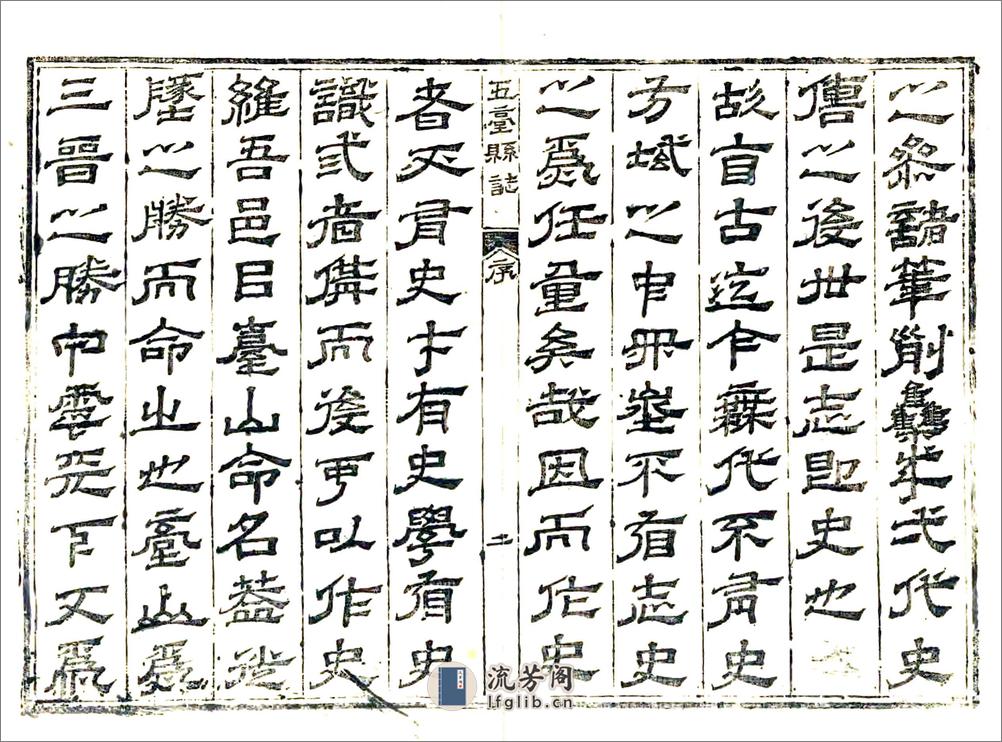 之叅諸筆削雧成弌代史
傳之後世是志即史也
故亘古迄今無代不有史
方域之中埊不有志史
之爲任重矣哉因而作史
五臺縣誌
序
者有史才有史學有史
識弎者備而後可以作史
維吾邑曰臺山命名蓋
墬之勝而命之也臺山爲
三晉之勝下又爲
流芳阁
lfglib.cn